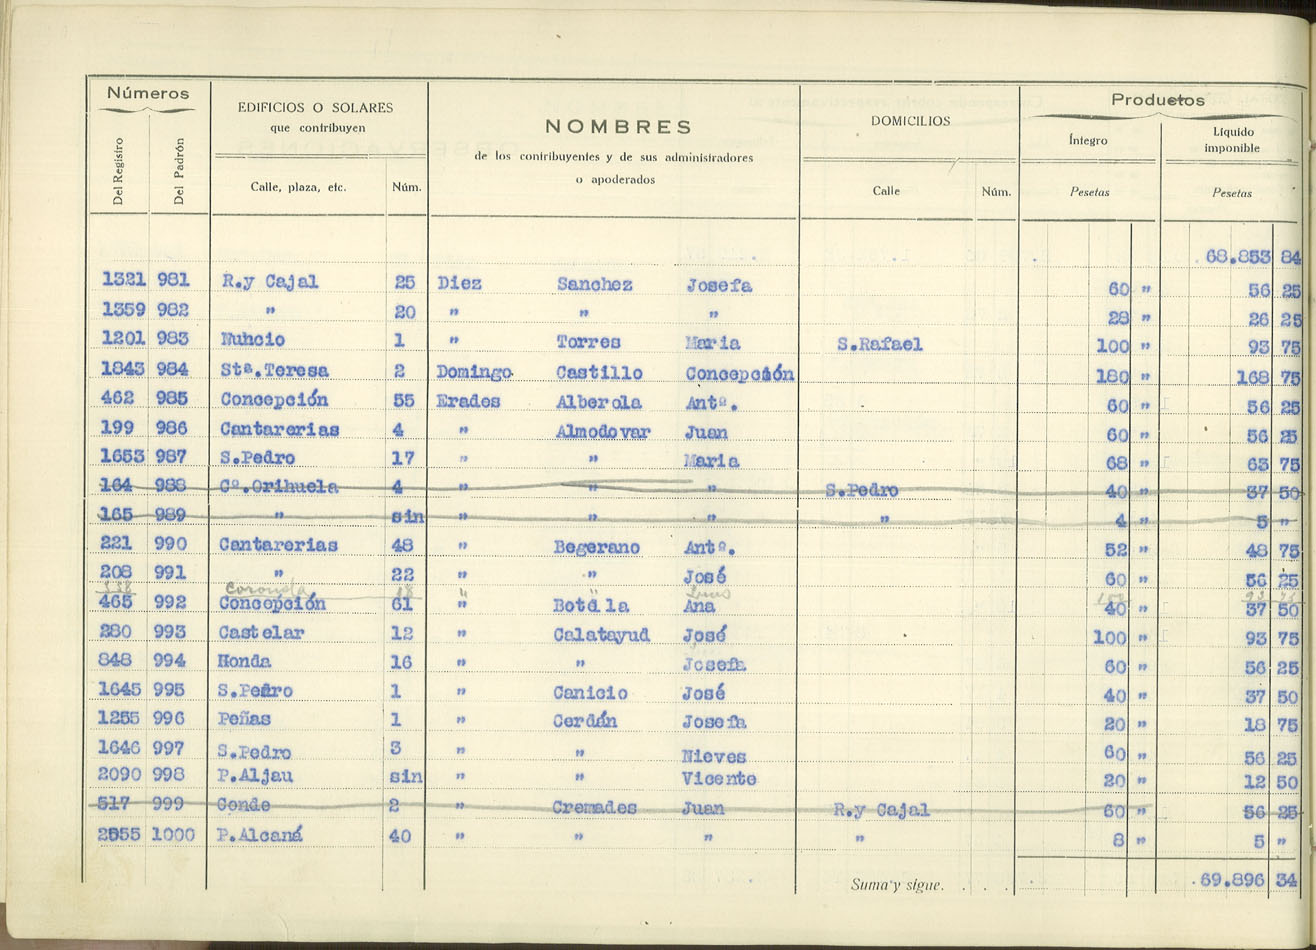 Números
EDIFICIOS O SOLARES
que contribuyen
NOMBRES
de los contribuyentes y de sus administradores
o apoderados
DOMICILIOS
Productos
Íntegro
Líquido
imponible
Del Registro
Del Padrón
Calle, plaza, etc.
Núm.
Calle
Núm.
Pesetas
Pesetas
68.853 84
1321 981 R.y Cajal 25 Diez Sanchez Josefa 60 " 56 25
1359 982 " 20 " " " 28 " 26 25
1201 983 Nuncio 1 " Torres Maria S.Rafael 100 " 93 75
1843 984 Stª.Teresa 2 Domingo Castillo Concepción 180 " 168 75
462 985 Concepción 55 Erades Alberola Antº. 60 " 56 25
199 986 Cantarerias 4 " Almodovar Juan 60 " 56 25
1653 987 S.Pedro 17 " " Maria 68 " 63 75
164 988 Cº.Orihuela 4 " " " S.Pedro 40 " 37 50
165 989 " sin " " " " 4 " 5 "
221 990 Cantarerias 48 " Begerano Antº. 52 " 48 75
208 991 " 22 " " José 60 " 56 25
338 Coronela 18 " " Luis 100 93 75
465 992 Concepción 61 " Botella Ana 40 " 37 50
280 993 Castelar 12 " Calatayud José 100 " 93 75
848 994 Honda 16 " " Josefa 60 " 56 25
1645 995 S.Pedro 1 " Canicio José 40 " 37 50
1255 996 Peñas 1 " Cerdán Josefa 20 " 18 75
1646 997 S.Pedro 3 " " Nieves 60 " 56 25
2090 998 P.Aljau sin " " Vicente 20 " 12 50
517 999 Conde 2 " Cremades Juan R.y Cajal 60 " 56 25
2555 1000 P.Alcaná 40 " " " " 8 " 5 "
Suma y sigue. . . . 69.896 34